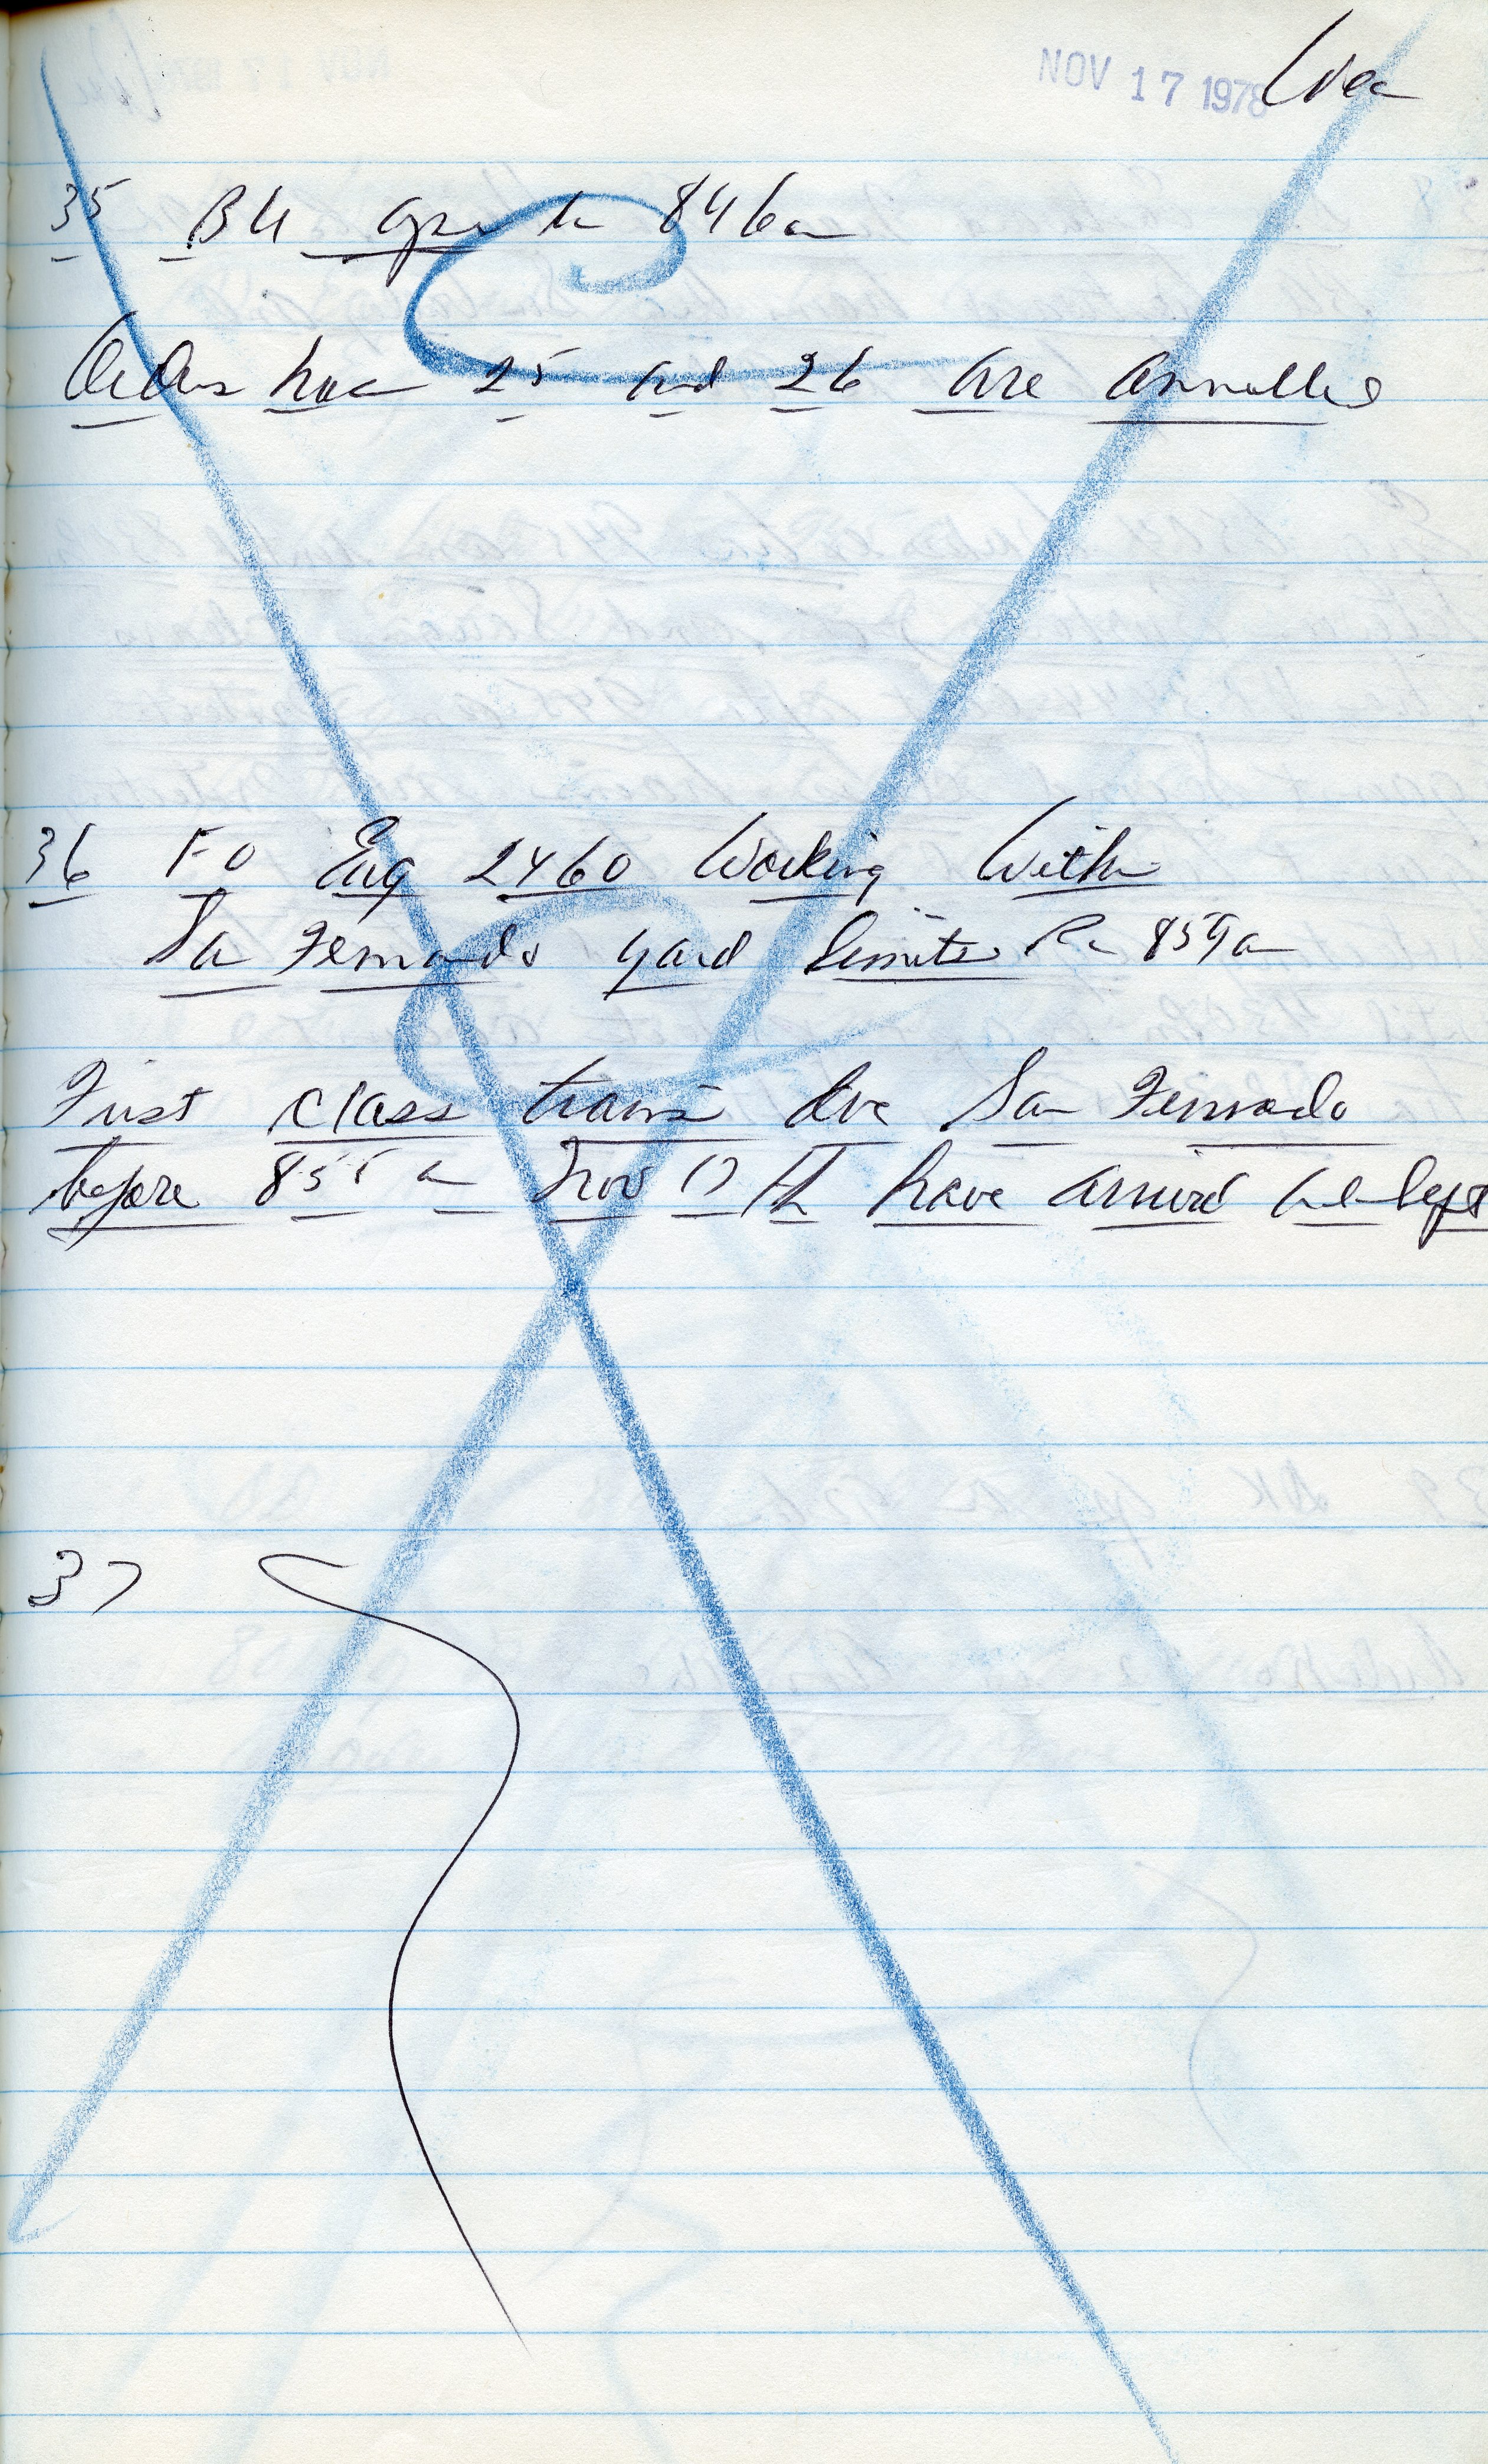 NOV 17 1978
35 BU 846a
Orders Nos 25 and 26 are annulled
36 FO Eng 2460 Working Within
San Fernando yard limits 859a
First class trains due San Fernando
before 855 a Nov 17th have arrived and left
37